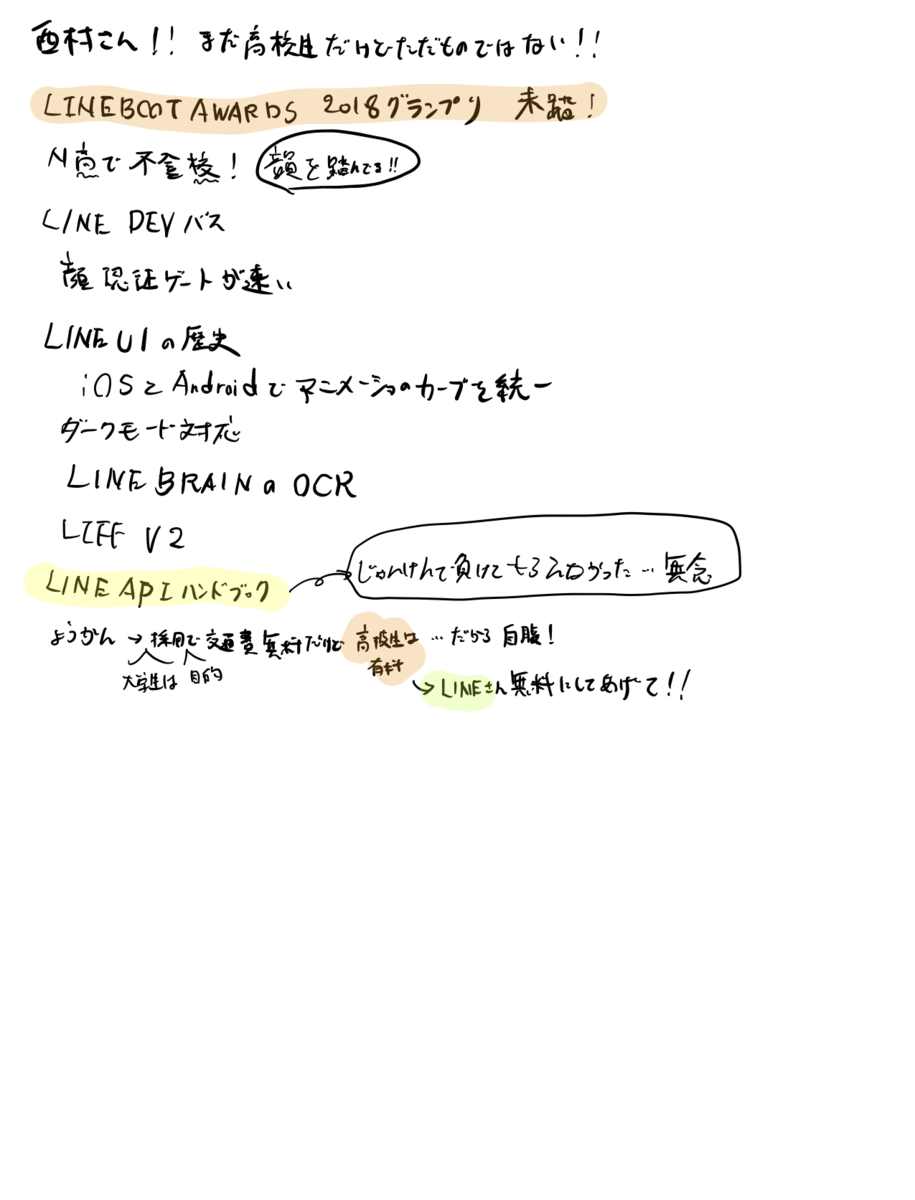 西村さん!! まだ高校生だけどただものではない!!
LINEBOOT AWARDS 2018グランプリ 未踏!
N高で不合格! 韻を踏んでる!!
LINE DEV バス
顔認証ゲートが速い
LINE UIの歴史
iOSとAndroidでアニメーションのカーブを統一
ダークモード対応
LINE BRAINのOCR
LIFF V2
LINE API ハンドブック
じゃんけんで負けてもらえなかった…無念
ようかん → 採用で交通費無料だけど 高校生は 有料 …だから自腹!
大学生は 目的
→ LINEさん無料にしてあげて!!